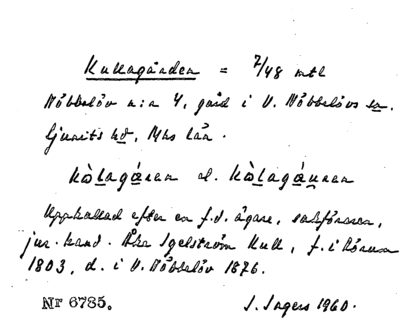 Kullagården = 7/48 mtl
Nöbbelöv n:a 4, gård i V. Nöbbelövs sn.
Ljunits hd, Mhs län.
kòlagáren el. kòlagáuren
Uppkallad efter en f.d. ägare, sakföraren,
jur. kand. Åke Igelström Kull, f. i Rörum
1803, d. i V. Nöbbelöv 1876.
Nr 6785. J. Ingers 1960.